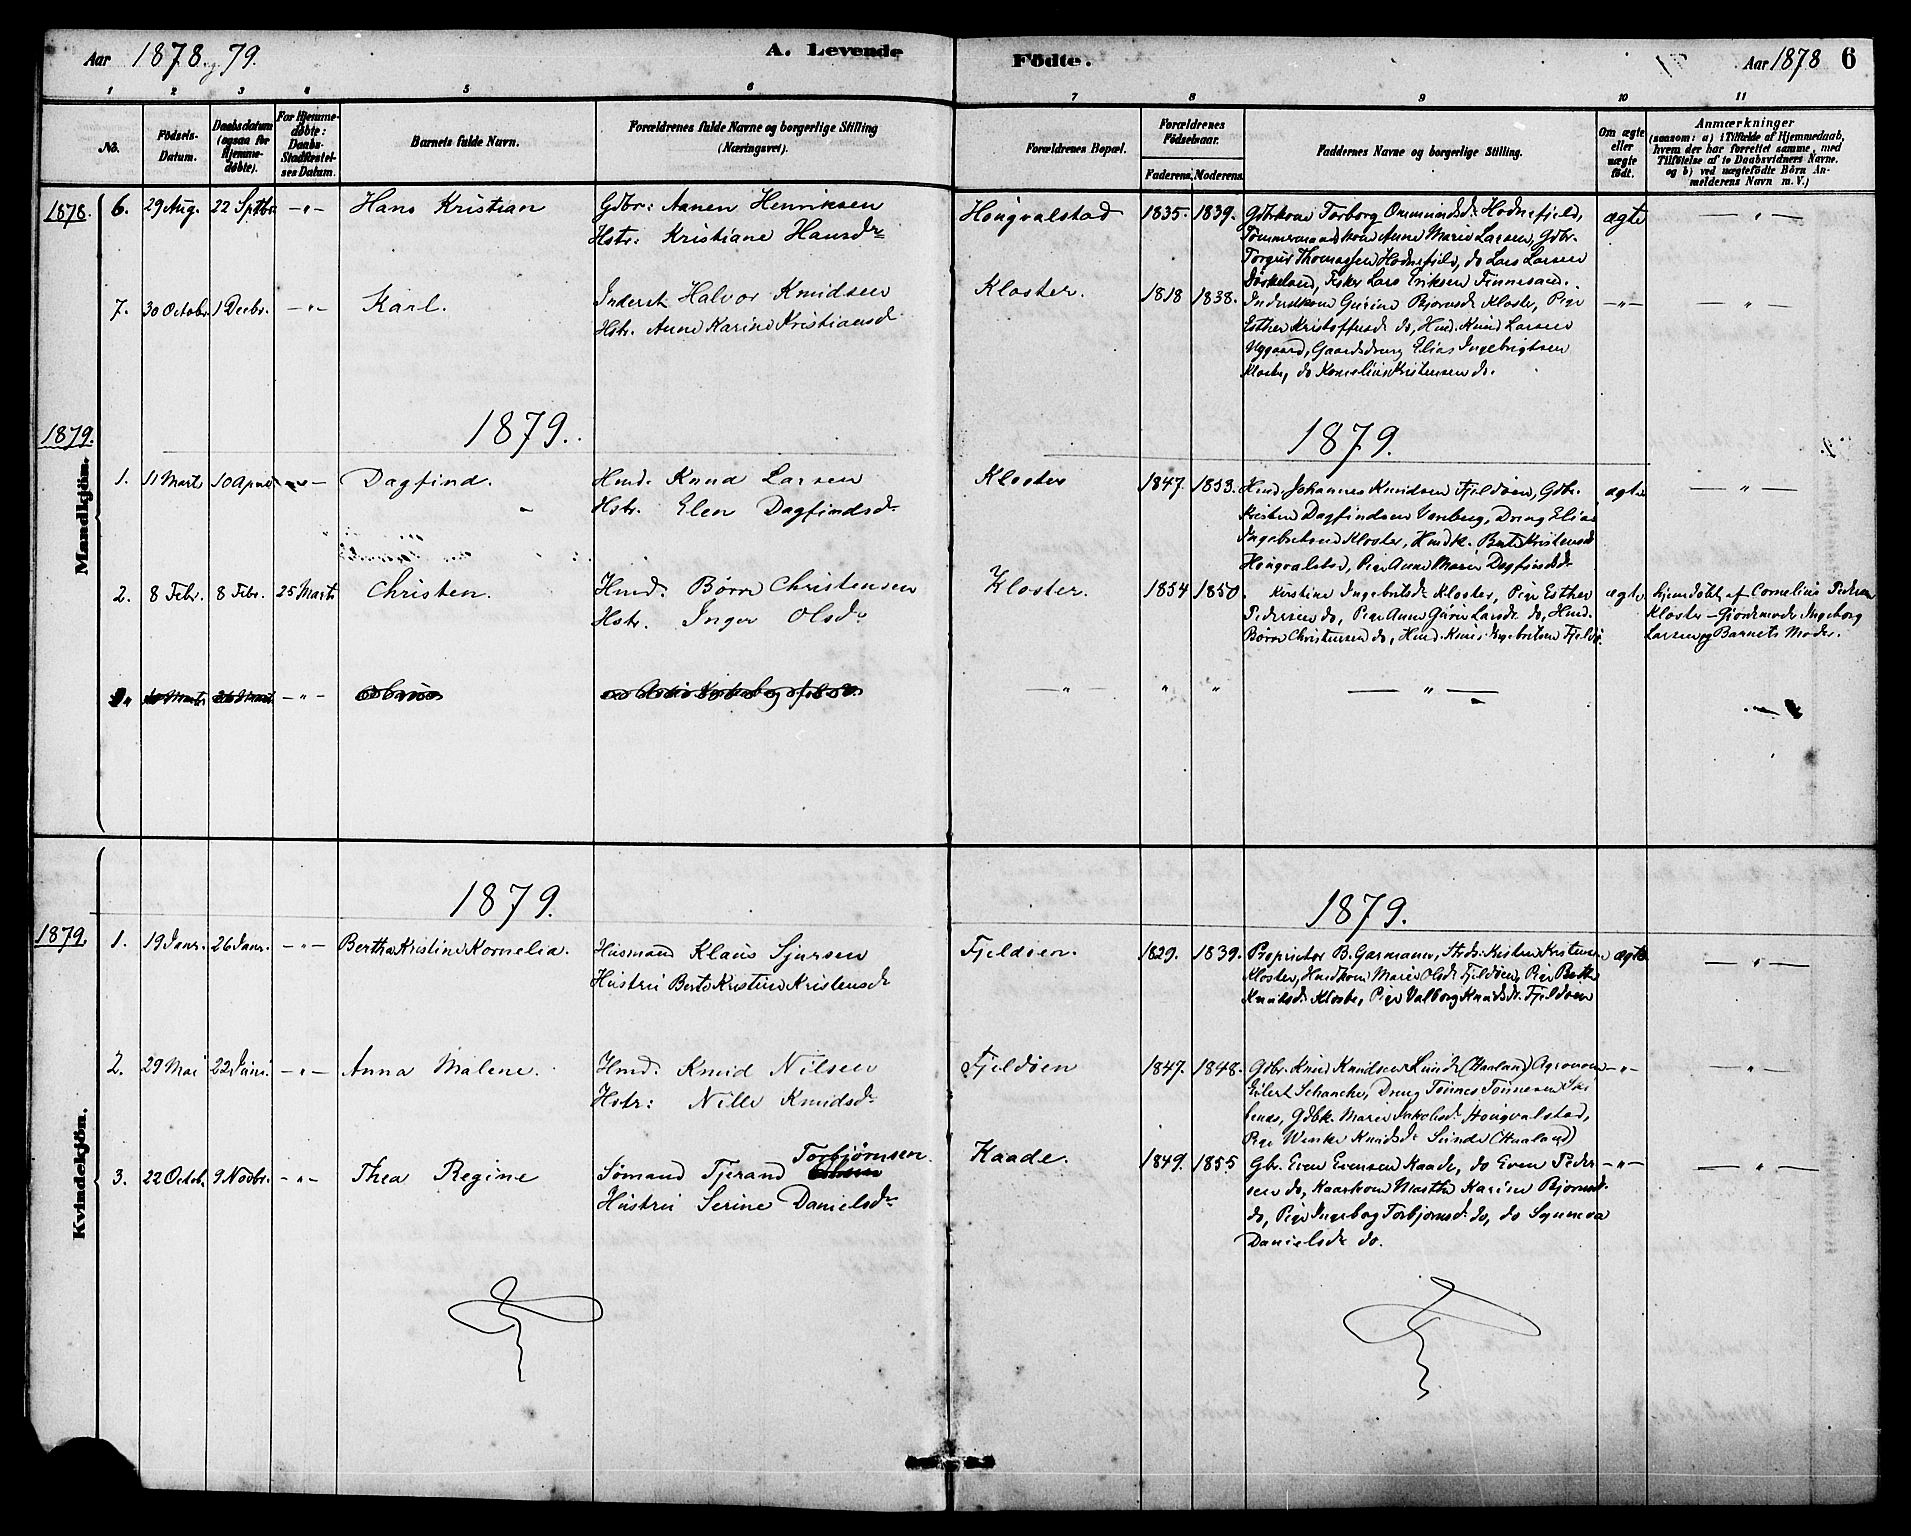 Aar 1878 og 79. A. Levende
Födte. Aar 1878 6
1 2 3 4 5 6
7 8 9 10 11
No. Födsels-Datum. Daabsdatum (ogsaa for Hjemmedøbte). For Hjemmedøbte: Daabs-Stadfæstelses Datum. Barnets fulde Navn. Forældrenes fulde Navne og borgerlige Stilling (Næringsvei).
Forældrenes Bopæl. Forældrenes Födselsaar. Faderens. Moderens. Faddernes Navne og borgerlige Stilling. Om ægte eller uægte født. Anmærkninger (saasom: a) i Tilfælde af Hjemmedaab, hvem der har forrettet samme, med Tilföielse af to Daabsvidners Navne, og b) ved uægtefödte Börn Anmelderens Navn m. V.)
Mandkjön.
1878. 6. 29 Aug. 22 Sptbr. -"- Hans Kristian Gdbr: Aanen Henriksen
Hstr: Kristiane Hansdr
Hougvalstad 1835. 1839. Gdbrkone Torborg Ommundsdr Hodnefjeld, ægte -"-
Tømmermandskone Anne Marie Larsen, Gdbr.
Torger Thomassen Hodnefjeld, do Lars Larsen
Fisker Lars Eriksen Finnesand.
7. 30 Octobr. 1 Decbr. -"- Karl. Inderst Halvor Knudsen
Hstr. Anne Karine Kristiansd.
Kloster. 1818 1838. Inderstkone Gurine Bjørnsdr Kloster, Pige -"- -"-
Esther Kristoffersdr do, Hmd. Knud Larsen
Nygaard, Gaardsdreng Elias Ingebrigtsen
Kloster, do Kornelius Kristensen do.
1879. 1879. 1879.
1. 11 Marts 10 April -"- Dagfind. Hmd. Knud Larsen
Hstr. Elen Dagfindsdr
Kloster 1847. 1853. Hmd. Johannes Knudsen Fjeldøen, Gdbr. ægte -"-
Kristen Dagfindsen Vareberg, Dreng Elias
Ingebretsen Kloster, Hmdk. Berte Kristensd
Hougvalstad, Pige Anne Marie Dagfindsdr
2. 8 Febr. 8 Febr. 25 Marts Christen. Hmd. Børre Christensen
Hstr. Inger Olsdr
Kloster. 1854 1850. Kirstine Ingebretsdr Kloster, Pige Esther ægte Hjemdöbt af Cornelius Pedersen
Pedersen do, Pige Anne Gurine Larsdr do, Hmd. Kloster - Gjordemoder Ingeborg
Børre Christensen do, Hmd. Knud Ingebretsen Fjeldø. Larsen og Barnets Moder.
-"- -"- " " -"-
Kvindekjön.
1879. 1879.
1879. 1. 19 Janr. 26 Janr. -"- Bertha Kristine Kornelia. Husmand Klaus Sjursen
Hustru Berte Kristine Kristensdr
Fjeldöen. 1829. 1839. Proprietør B. Garmann, Kristen Kristensen ægte -"-
Kloster, Hmdkone Marie Olsdr Fjeldøen, Pige Berthe
Knudsdr Kloster, Pige Valborg Knudsdr Fjeldøen
2. 29 Mai 22 Juni -"- Anna Malene. Hmd. Knud Nilsen
Hstr: Nille Knudsdr
Fjeldöen 1847. 1848. Gdbr. Knud Knudsen Sunde (Haaland) Agronom -"- -"-
Eilert Schancke, Dreng Tönnes Tönnesen
Gdbk. Maren Jakobsdr Hougvalstad,
Pige Wenke Knudsdr Sunde (Haaland)
3. 22 Octob. 9 Novbr. -"- Thea Regine Sömand Tjerand Torbjørnsen.
Hustru Serine Danielsdr
Kaade. 1849. 1855 Gbr. Even Evensen Kaade, do Even Peder- -"- -"-
sen do, Kaarkone Marthe Karine Bjørnsd.
do, Pige Ingeborg Torbjørnsdr do, do Synneva
Danielsdr do.